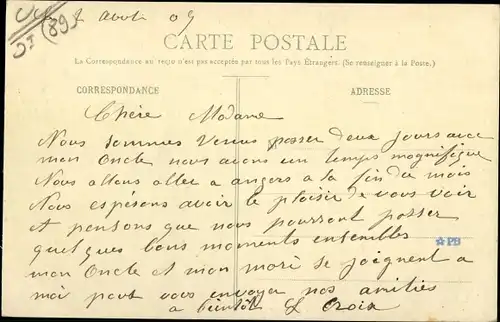 2 Aout 09
(89)
CARTE POSTALE
La Correspondance au recto n'est pas acceptée par tous les Pays Étrangers. (Se renseigner à la Poste.)
CORRESPONDANCE
ADRESSE
Chère Madame
Nous sommes venus passer deux jours avec
mon Oncle nous avons un temps magnifique
Nous allons aller a angers a la fin du mois
Nous esperons avoir le plaisir de vous voir
et pensons que nous pourrons passer
quelques bons moments ensembles
mon Oncle et mon mari se joignent a
moi pout vous envoyer nos amitiés
a bientôt L Croix
PB